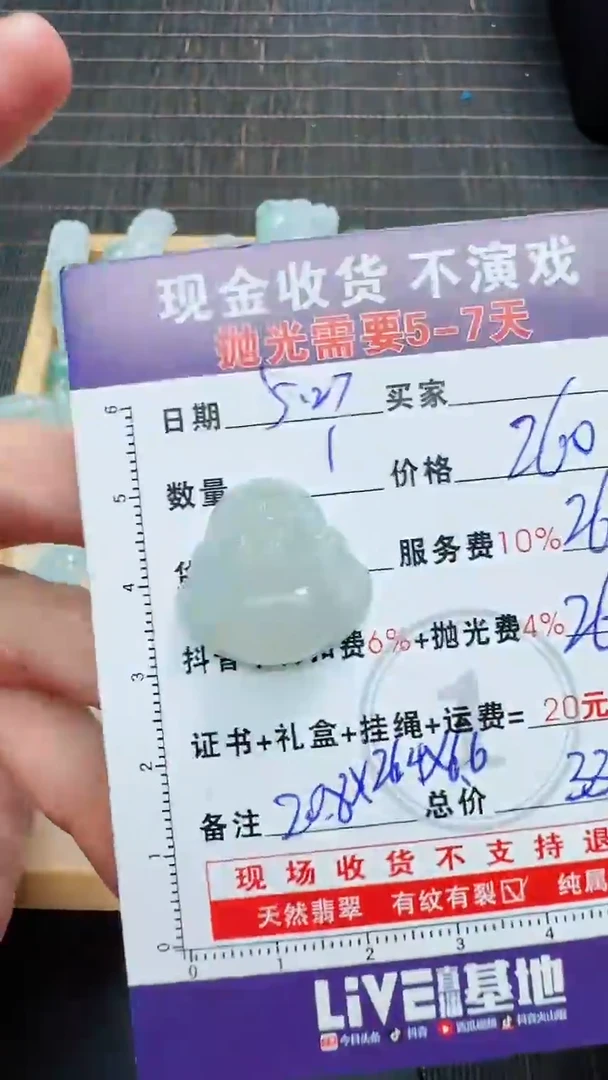 现金收货 不演戏
抛光需要5-7天
日期 5.27 买家
数量 1 价格 260
服务费10% 26
费6%+抛光费4% 26
证书+礼盒+挂绳+运费= 20元
备注 20.8×26.4×6.6 总价 33
现场收货不支持退
天然翡翠 有纹有裂☑ 纯属
LiVE直播基地
今日头条 抖音 西瓜视频 抖音火山版
6
5
4
3
2
1
0
0 1 2 3 4